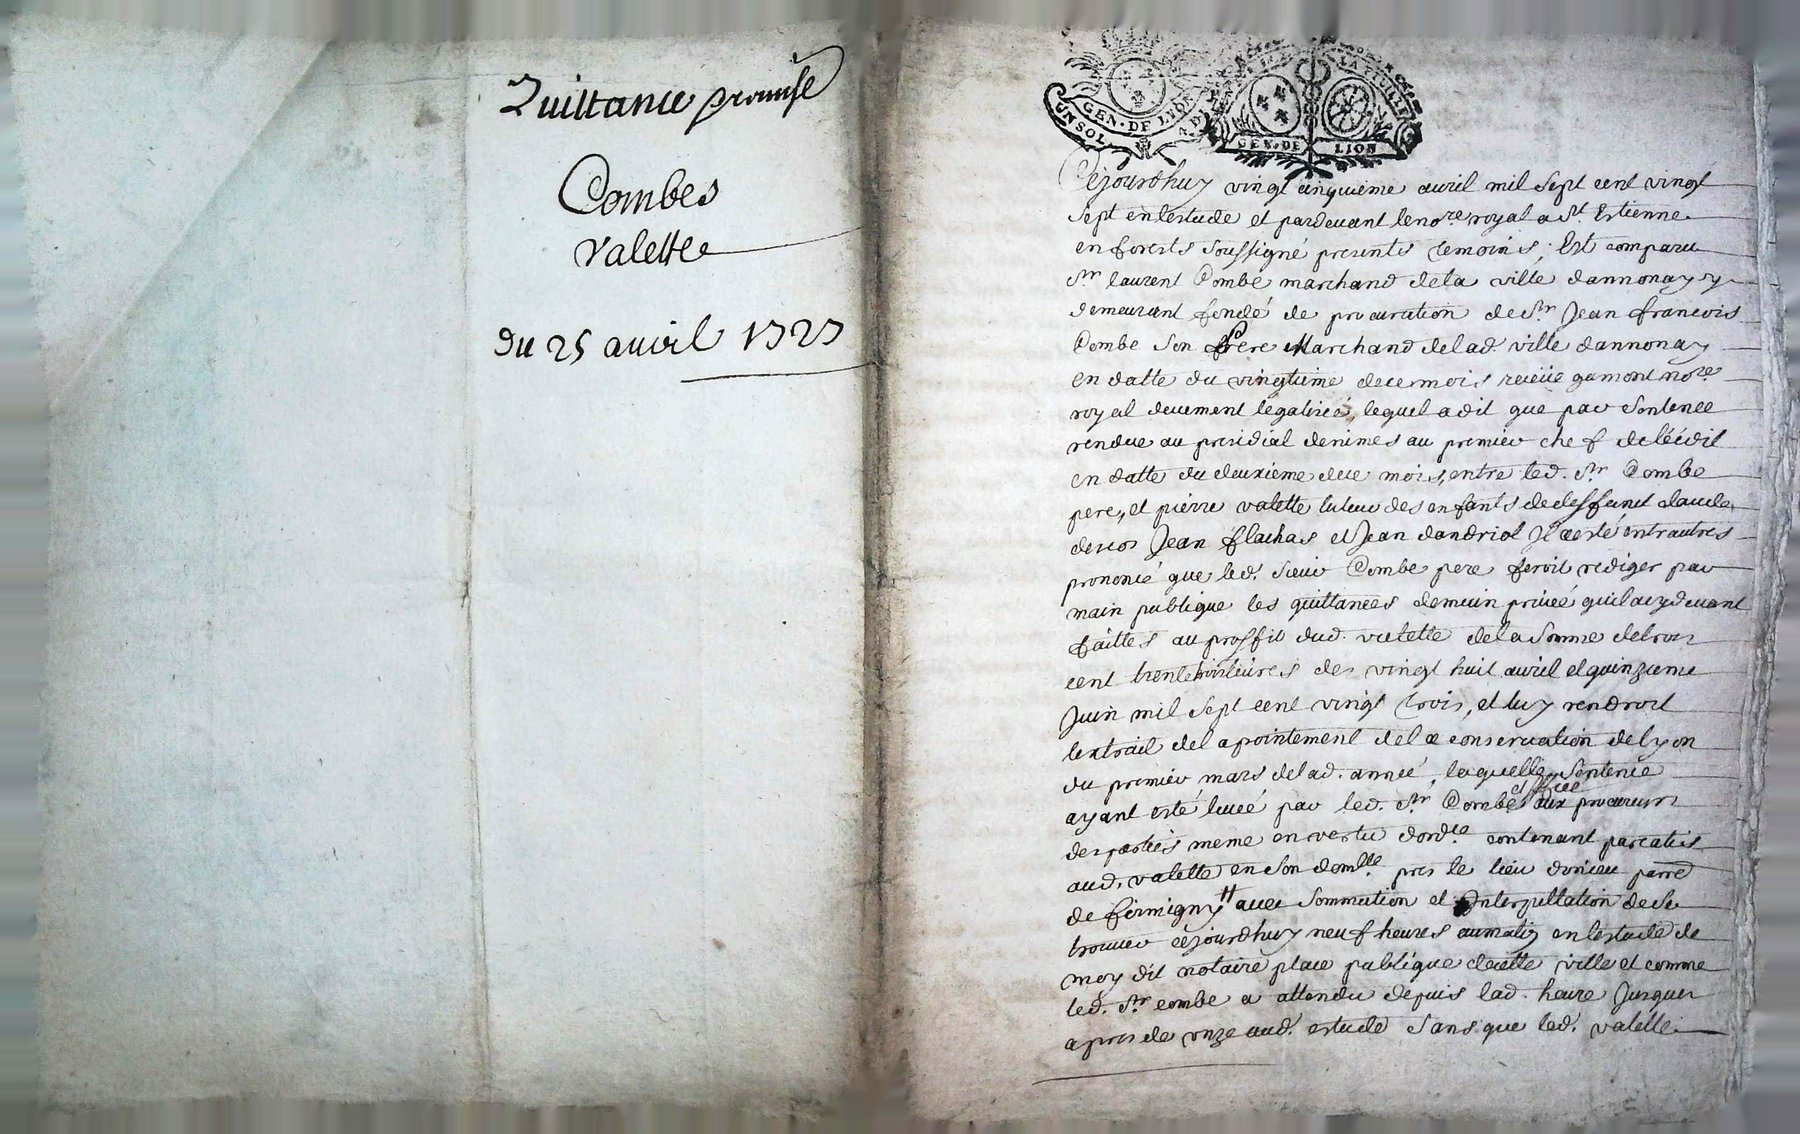 Quittance promise
Combes
Valette
du 25 avril 1727
GEN. DE LION
UN SOL
GEN. DE LION
Cejourdhuy vingt cinquieme avril mil sept cent vingt
sept en lestude et pardevant le nore royal a St Estienne
en forests soussigné presents temoins, Est comparu
Sr laurent Combe marchand de la ville dannonay y
demeurant fondé de procuration de Sr Jean francois
Combe son pere Marchand de lad. ville dannonay
en datte du vingtieme de ce mois receüe gamont nore
royal deuement legalisée, lequel a dit que par sentence
rendue au presidial de nimes au premier chef de lédit
en datte du deuxieme de ce mois, entre led. Sr Combe
pere, et pierre valette tuteur des enfants de deffunt claude
Jean flachas et Jean dandriol Il a esté entrautres
prononcé que led. sieur Combe pere feroit rediger par
main publique les quittances de main privée quil a cy devant
faittes au proffit dud. valette de la somme de trois
cent trente trois livres des vingt huit avril et quinzieme
Juin mil sept cent vingt trois, et luy rendroit
lextrait de lapointement de la conservation de lyon
du premier mars de lad. année, laquelle sentence
ayant esté levée par led. Sr Combe et siffiee aux procureurs
des parties meme en vertu dordce contenant pareatis
aud. valette en son domlle pres le lieu parre
de firmigny avec sommation et Interpellation de se
trouver cejourdhuy neuf heures au matin en lestude de
moy dit notaire place publique de cette ville et comme
led. Sr combe a attendu depuis lad. heure Jusques
apres de onze aud. estude sans que led. valette